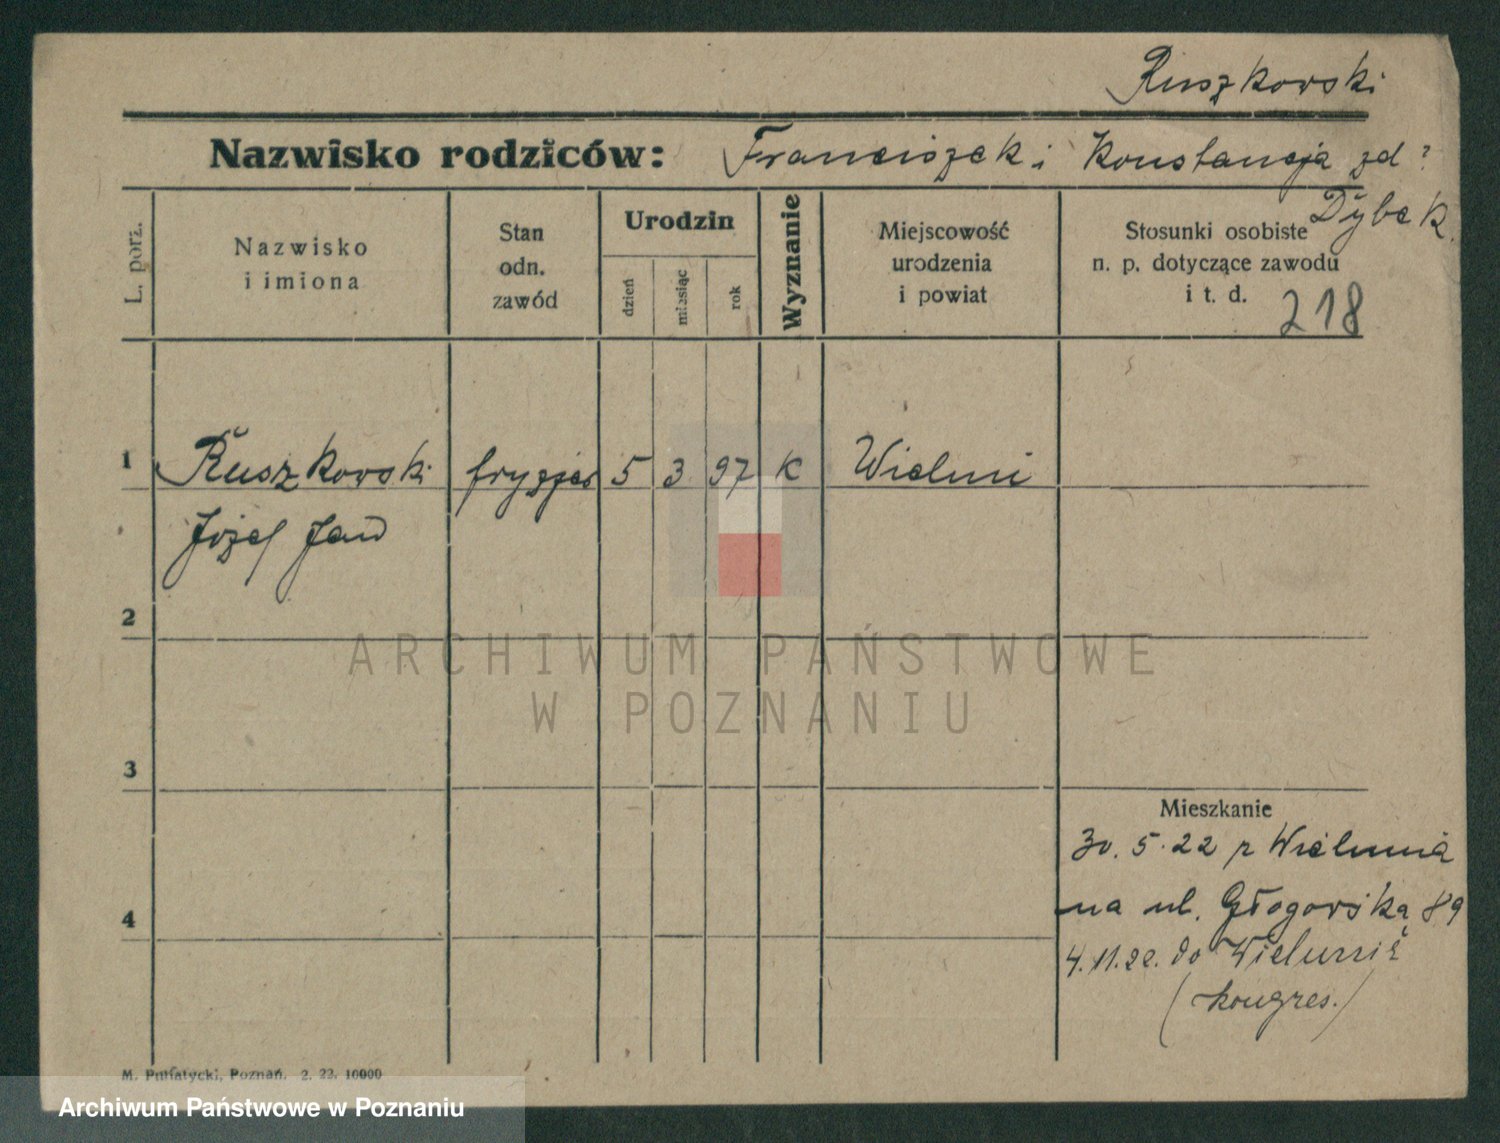 Ruszkowski
Nazwisko rodziców: Franciszek i Konstancja zd?
Dybek.
L. porz.
Nazwisko
i imiona
Stan
odn.
zawód
Urodzin
dzień
miesiąc
rok
Wyznanie
Miejscowość
urodzenia
i powiat
Stosunki osobiste
n. p. dotyczące zawodu
i t. d.
218
1 Ruszkowski fryzjer 5 3. 97 K Wieluni
Józef Jan
2
3
Mieszkanie
30. 5. 22 z Wielunia
4
na ul. Głogowska 89
4. 11. 22. do Wielunia
(kongres.)
M. Putiatycki, Poznań. 2. 22. 10000
ARCHIWUM PAŃSTWOWE
W POZNANIU
Archiwum Państwowe w Poznaniu